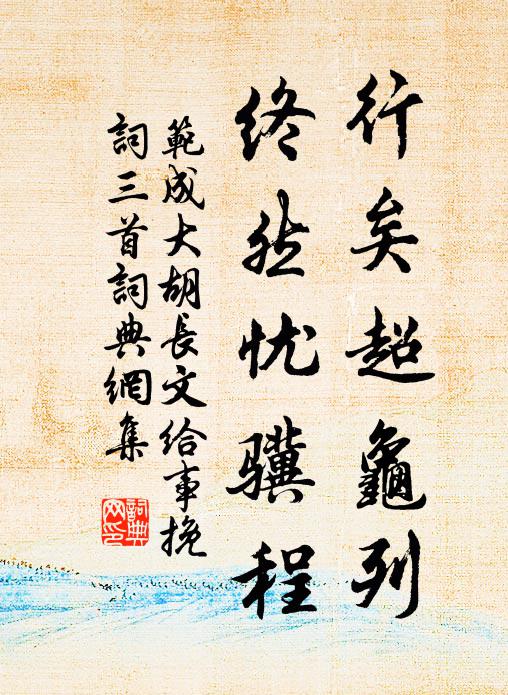 行矣超龜列
终然忧骥程
範成大胡長文給事挽
詞三首詞典網集
詞典
网印